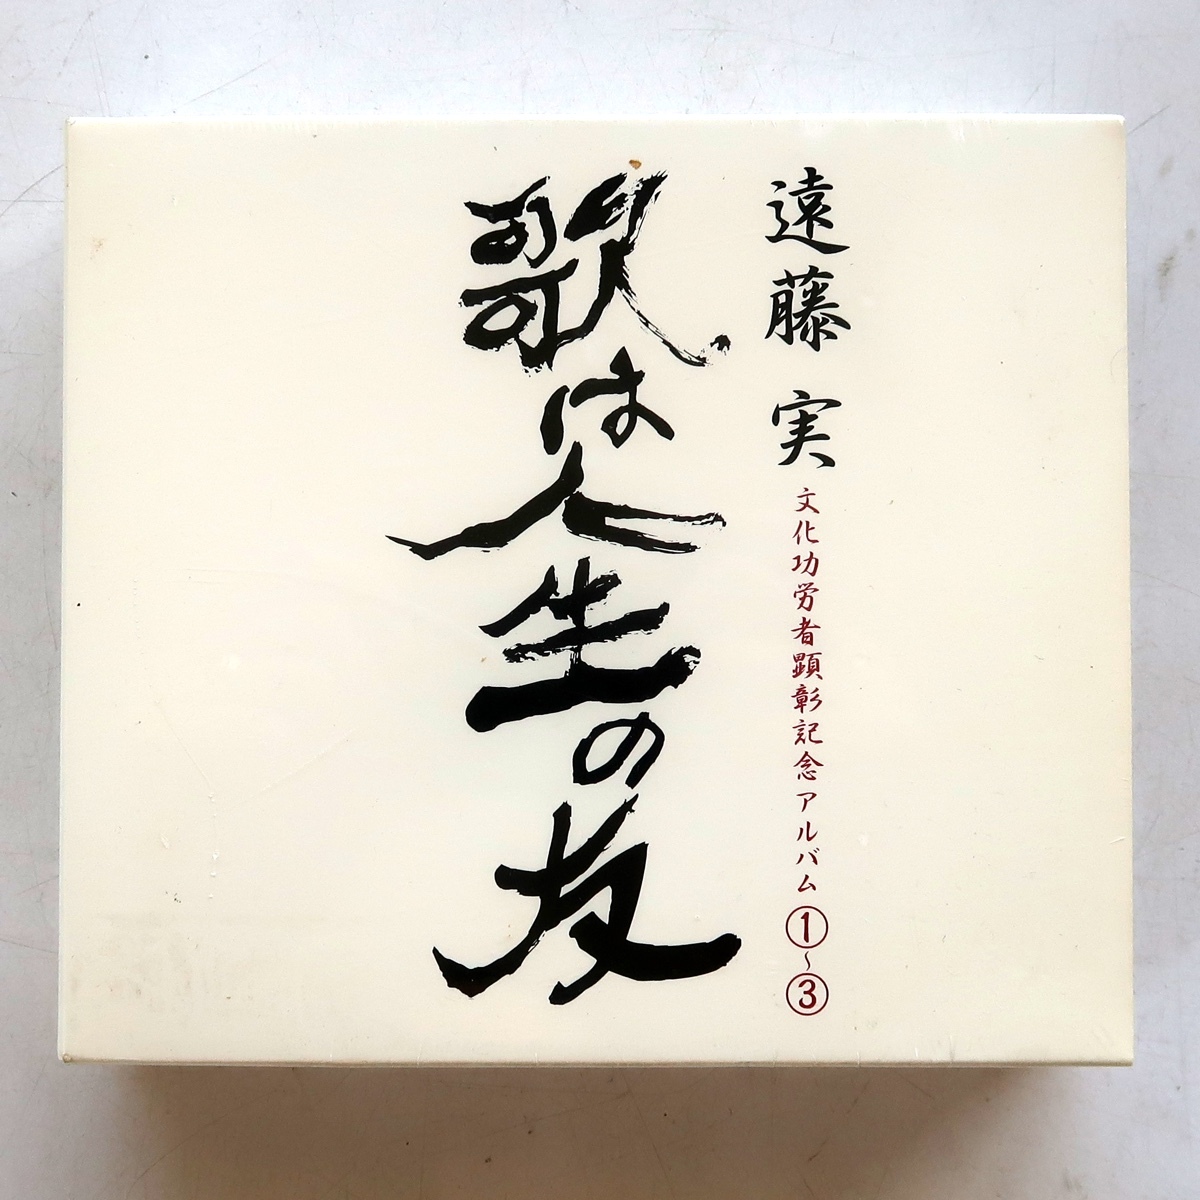 遠藤実
文化功労者顕彰記念アルバム①~③
歌は人生の友